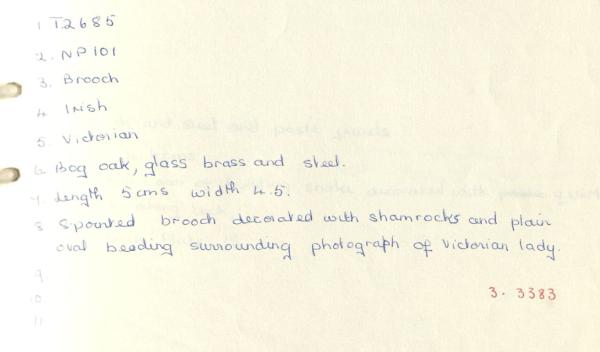 1 T2685
2. NP101
3. Brooch
4. Irish
5. Victorian
6. Bog oak, glass brass and steel.
7. Length 5cms width 4.5.
8 Spounted brooch decorated with shamrocks and plain
oval beading surrounding photograph of Victorian lady.
9
10
11
3. 3383